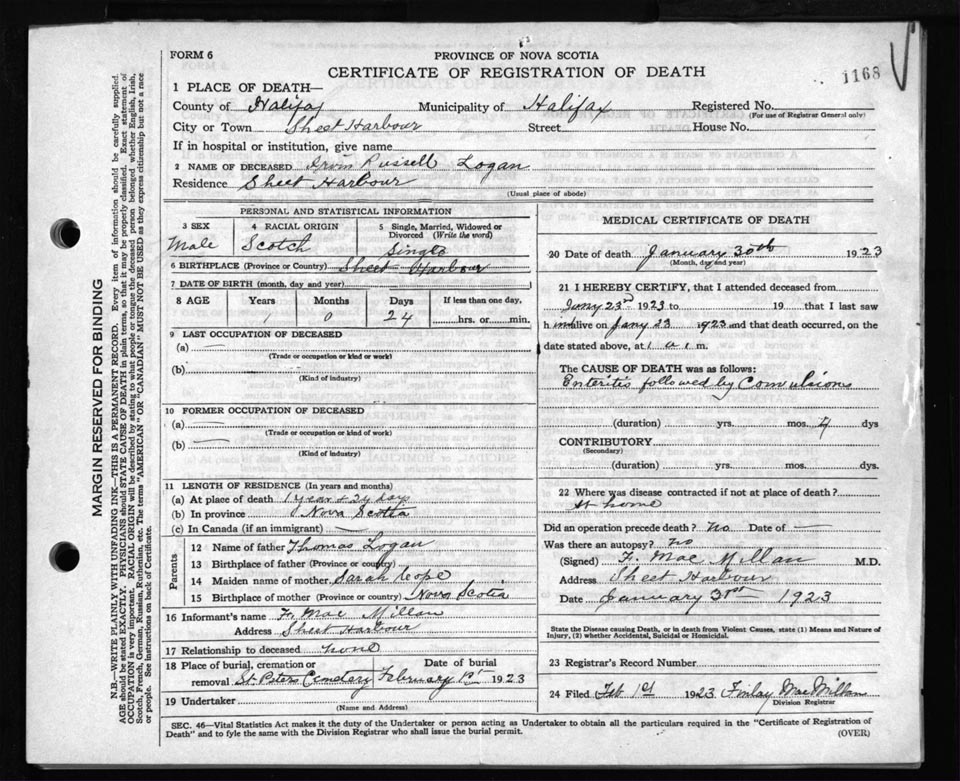 FORM 6
PROVINCE OF NOVA SCOTIA
CERTIFICATE OF REGISTRATION OF DEATH
1168
1 PLACE OF DEATH—
County of Halifax Municipality of Halifax Registered No.
(For use of Registrar General only)
City or Town Sheet Harbour Street House No.
If in hospital or institution, give name
2 NAME OF DECEASED Irvin Russell Logan
Residence Sheet Harbour
(Usual place of abode)
PERSONAL AND STATISTICAL INFORMATION
3 SEX 4 RACIAL ORIGIN 5 Single, Married, Widowed or Divorced (Write the word)
Male Scotch Single
6 BIRTHPLACE (Province or Country) Sheet Harbour
7 DATE OF BIRTH (month, day and year)
8 AGE Years Months Days If less than one day,
1 0 24 hrs. or min.
9 LAST OCCUPATION OF DECEASED
(a) —
(Trade or occupation or kind or work)
(b)
(Kind of industry)
10 FORMER OCCUPATION OF DECEASED
(a) —
(Trade or occupation or kind of work)
(b) —
(Kind of industry)
11 LENGTH OF RESIDENCE (In years and months)
(a) At place of death 1 year & 24 days
(b) In province Nova Scotia
(c) In Canada (if an immigrant) —
Parents
12 Name of father Thomas Logan
13 Birthplace of father (Province or country)
14 Maiden name of mother Sarah Cope
15 Birthplace of mother (Province or country) Nova Scotia
16 Informant's name F. Mac Millan
Address Sheet Harbour
17 Relationship to deceased none
18 Place of burial, cremation or removal St. Peters Cemetery Date of burial February 1st 1923
19 Undertaker
(Name and Address)
MEDICAL CERTIFICATE OF DEATH
20 Date of death January 30th 1923
(Month, day and year)
21 I HEREBY CERTIFY, that I attended deceased from
Jany 23rd 1923 to 19 that I last saw
h im alive on Jany 23 1923 and that death occurred, on the
date stated above, at 1 a 1 m.
The CAUSE OF DEATH was as follows:
Enteritis followed by Convulsions
(duration) yrs. mos. 4 dys
CONTRIBUTORY
(Secondary)
(duration) yrs. mos. dys.
22 Where was disease contracted if not at place of death?
At home
Did an operation precede death? no Date of —
Was there an autopsy? no
(Signed) F. Mac Millan M.D.
Address Sheet Harbour
Date January 31st 1923
State the Disease causing Death, or in death from Violent Causes, state (1) Means and Nature of
Injury, (2) whether Accidental, Suicidal or Homicidal.
23 Registrar's Record Number
24 Filed Feb 1st 1923 Finlay MacMillan
Division Registrar
SEC. 46—Vital Statistics Act makes it the duty of the Undertaker or person acting as Undertaker to obtain all the particulars required in the "Certificate of Registration of
Death" and to fyle the same with the Division Registrar who shall issue the burial permit.
(OVER)
MARGIN RESERVED FOR BINDING
N.B.—WRITE PLAINLY WITH UNFADING INK—THIS IS A PERMANENT RECORD. Every item of information should be carefully supplied.
AGE should be stated EXACTLY. PHYSICIANS should STATE CAUSE OF DEATH in plain terms, so that it may be properly classified. Exact statement of
OCCUPATION is very important. RACIAL ORIGIN will be described by stating to what people or tongue the deceased person belonged whether English, Irish,
Scotch, French, German, Russian, Ruthenian, etc. The terms "AMERICAN" OR "CANADIAN" MUST NOT BE USED as they express citizenship but not a race
or people. See instructions on back of Certificate.